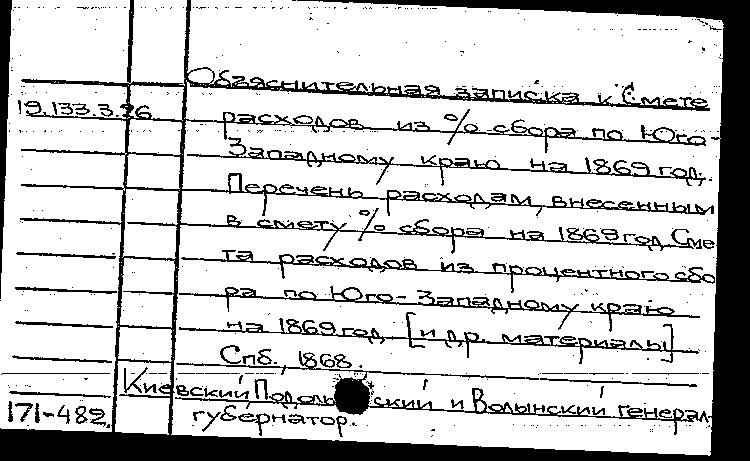 Объяснительная записка к Смете
19.133.3.26 расходов из % сбора по Юго-
Западному краю на 1869 год.
Перечень расходам, внесенным
в смету % сбора на 1869 год. Сме
та расходов из процентного сбо
ра по Юго-Западному краю
на 1869 год [и др. материалы]
Спб., 1868.
Киевский, Подольский и Волынский генерал
171-482. губернатор.